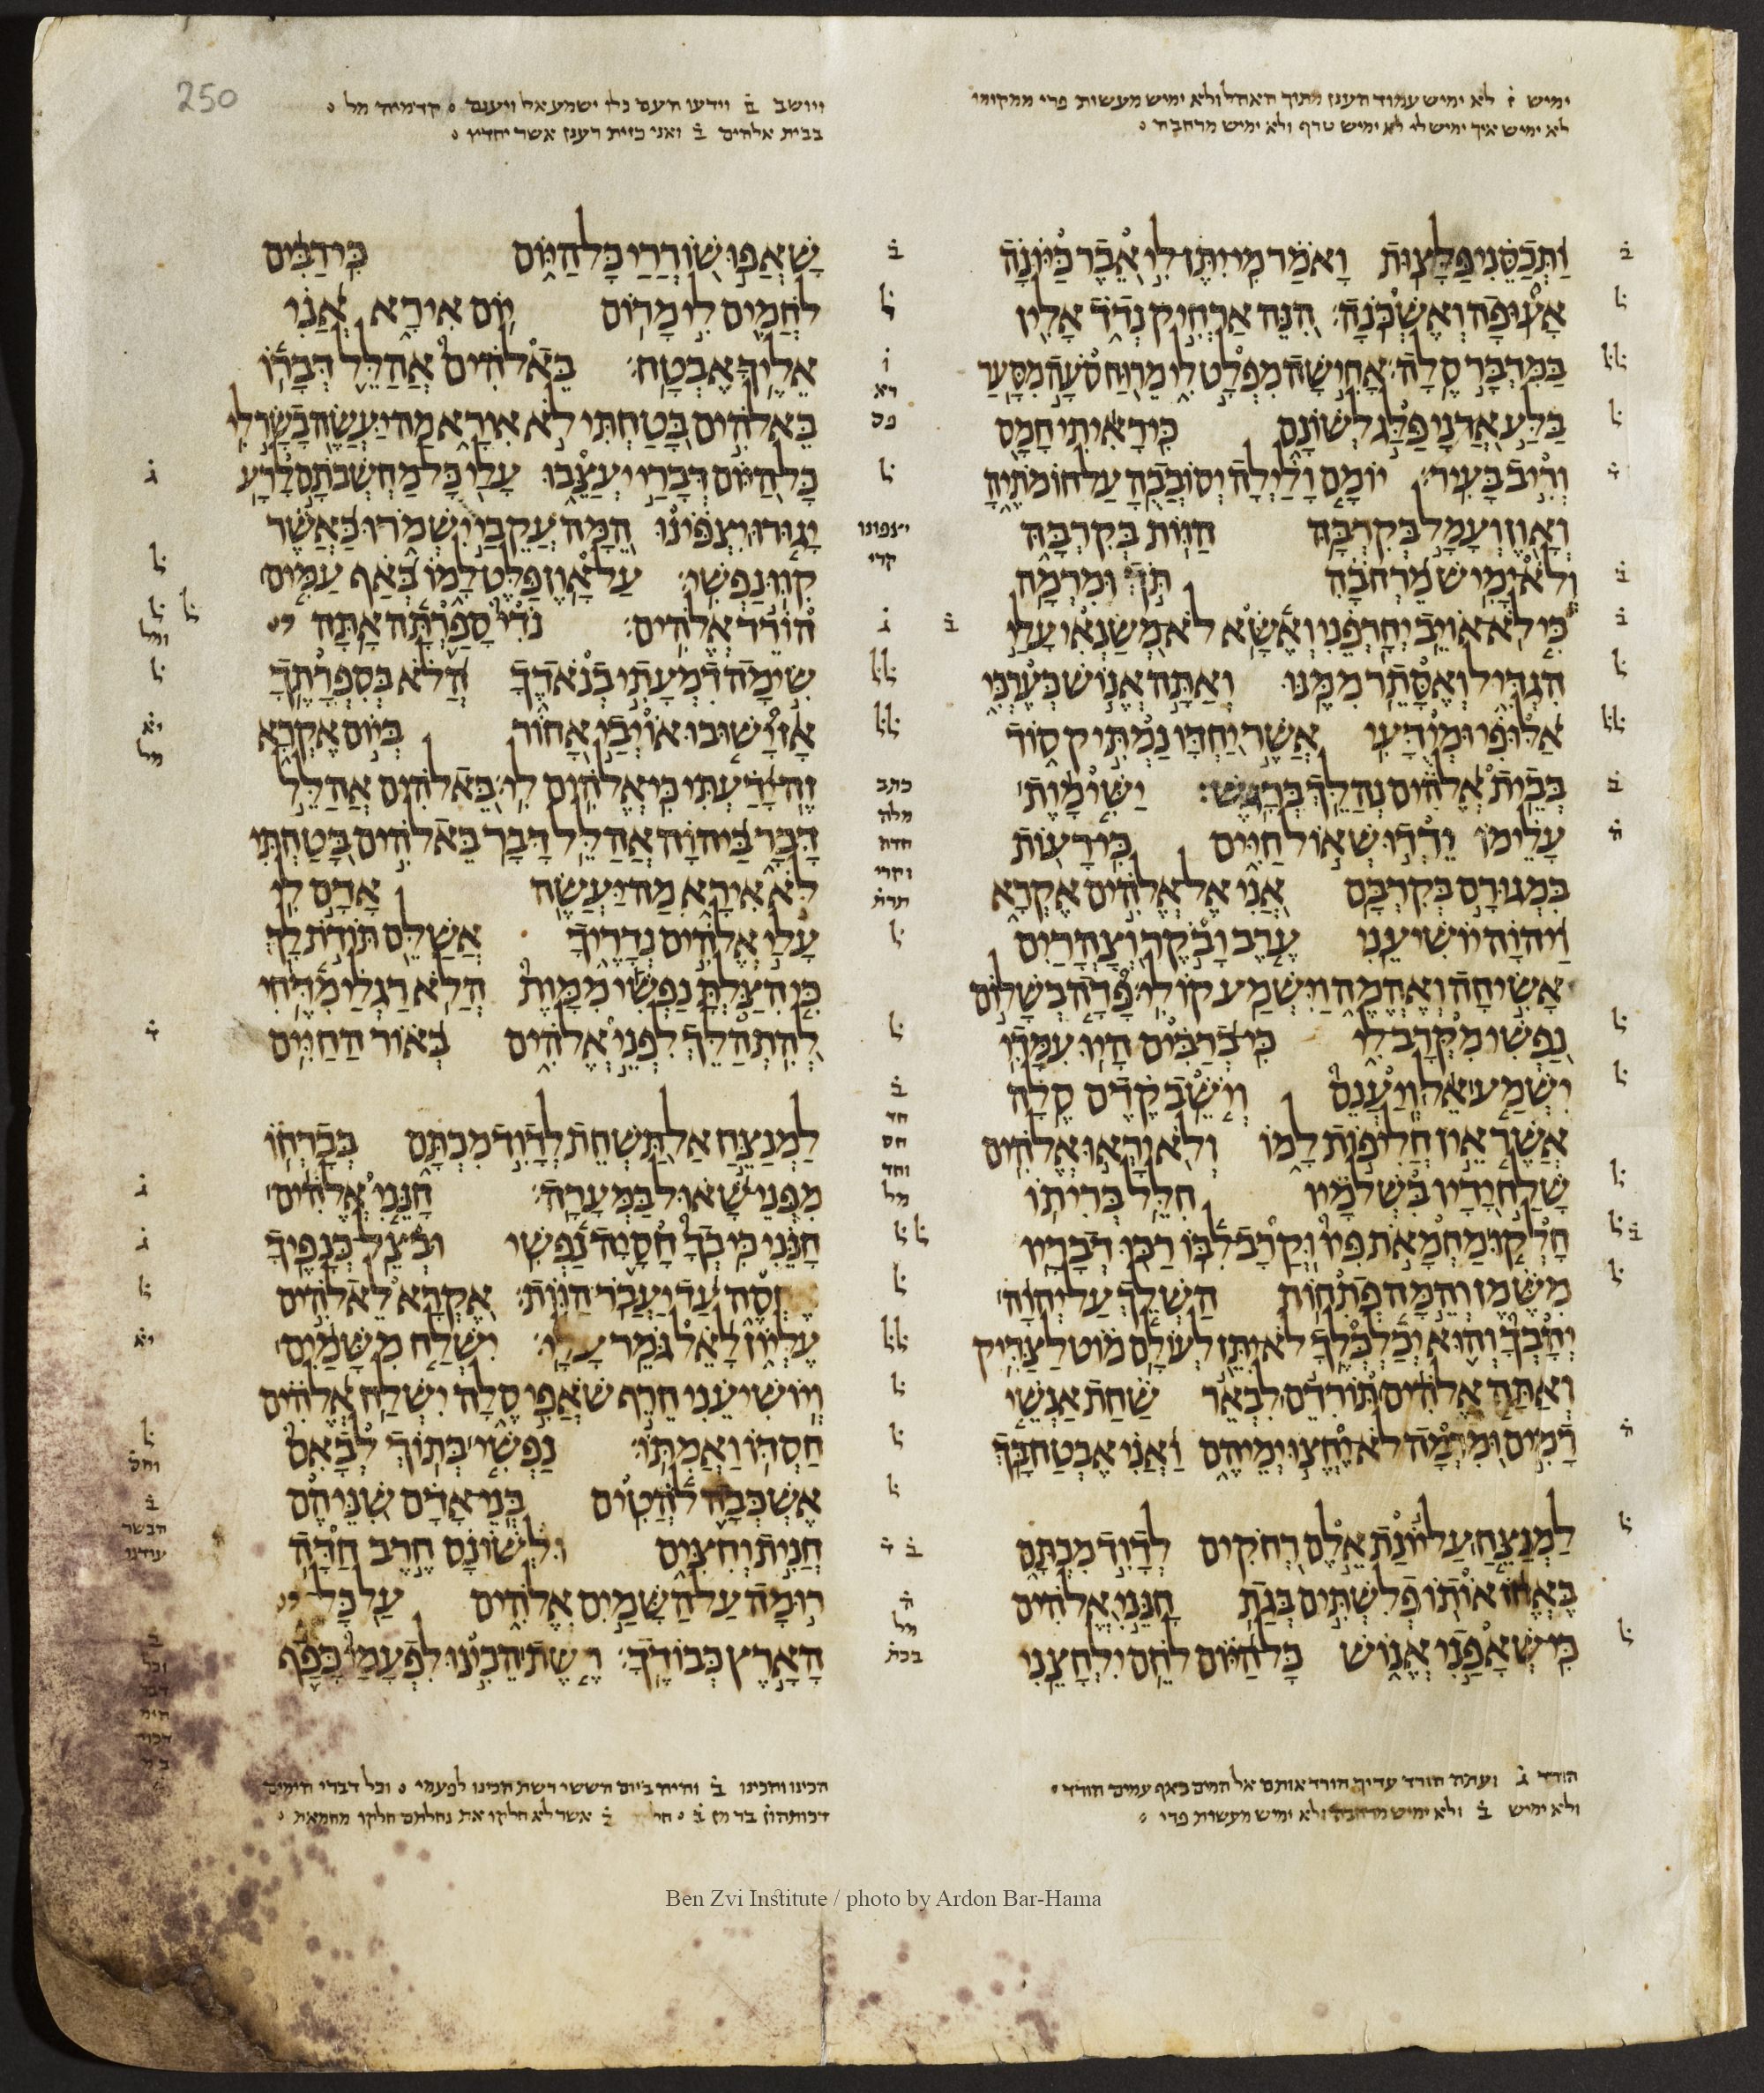 250
ימיש ז לא ימיש עמוד הענן מתוך האהל ולא ימיש מעשות פרי ממקומו
לא ימיש איך ימיש לי לא ימיש טרף ולא ימיש מרחבה
ותכסני פלצות ואמר מי יתן לי אבר כיונה
אעופה ואשכנה הנה ארחיק נדד אלין
במדבר סלה אחישה מפלט לי מרוח סעה מסער
בלע אדני פלג לשונם כי ראיתי חמס
וריב בעיר יומם ולילה יסובבה על חומתיה
ואון ועמל בקרבה הוות בקרבה
ולא ימיש מרחבה תך ומרמה
כי לא אויב יחרפני ואשא לא משנאי עלי
הגדיל ואסתר ממנו ואתה אנוש כערכי
אלופי ומידעי אשר יחדו נמתיק סוד
בבית אלהים נהלך ברגש ישימות
עלימו ירדו שאול חיים כי רעות
במגורם בקרבם אני אל אלהים אקרא
ויהוה יושיעני ערב ובקר וצהרים
אשיחה ואהמה וישמע קולי פדה בשלום
נפשי מקרב לי כי ברבים היו עמדי
ישמע אל ויענם וישב קדם סלה
אשר אין חליפות למו ולא יראו אלהים
שלח ידיו בשלמיו חלל בריתו
חלקו מחמאת פיו וקרב לבו רכו דבריו
משמן והמה פתחות השלך על יהוה
יהבך והוא יכלכלך לא יתן לעולם מוט לצדיק
ואתה אלהים תורדם לבאר שחת אנשי
דמים ומרמה לא יחצו ימיהם ואני אבטח בך
למנצח על יונת אלם רחקים לדוד מכתם
באחז אותו פלשתים בגת חנני אלהים
כי שאפני אנוש כל היום לחם ילחצני
הורד ג ועתה הורד עדיך הורד אותם אל המים באף עמים הורד
ולא ימיש ב ולא ימיש מרחבה ולא ימיש מעשות פרי
ויושב ב וידעו העם כלו ישמע אל ויענם קדמיה מל
בבית אלהים ב ואני כזית רענן אשר יחדיו
שאפו שוררי כל היום כי רבים
לחמים לי מרום יום אירא אני
אליך אבטח באלהים אהלל דברו
באלהים בטחתי לא אירא מה יעשה בשר לי
כל היום דברי יעצבו עלי כל מחשבתם לרע
יגורו יצפינו המה עקבי ישמרו כאשר
קוו נפשי על און פלט למו באף עמים
הורד אלהים נדי ספרתה אתה
שימה דמעתי בנאדך הלא בספרתך
אז ישובו אויבי אחור ביום אקרא
זה ידעתי כי אלהים לי באלהים אהלל
דבר ביהוה אהלל דבר באלהים בטחתי
לא אירא מה יעשה אדם לי
עלי אלהים נדריך אשלם תודת לך
כי הצלת נפשי ממות הלא רגלי מדחי
להתהלך לפני אלהים באור החיים
למנצח אל תשחת לדוד מכתם בברחו
מפני שאול במערה חנני אלהים
חנני כי בך חסיה נפשי ובצל כנפיך
אחסה עד יעבר הוות אקרא לאלהים
עליון לאל גמר עלי ישלח משמים
ויושיעני חרף שאפי סלה ישלח אלהים
חסדו ואמתו נפשי בתוך לבאם
אשכבה להטים בני אדם שניהם
חנית וחצים ולשונם חרב חדה
רומה על השמים אלהים על כל
הארץ כבודך רשת הכינו לפעמי כפף
הכינו והכינו ב והיה ביום הששי רשת הכינו לפעמי וכל דברי הימים
דכותהון בר מן ב חל ב אשר לא חלקו את נחלתם חלקו מחמאת
Ben Zvi Institute / photo by Ardon Bar-Hama